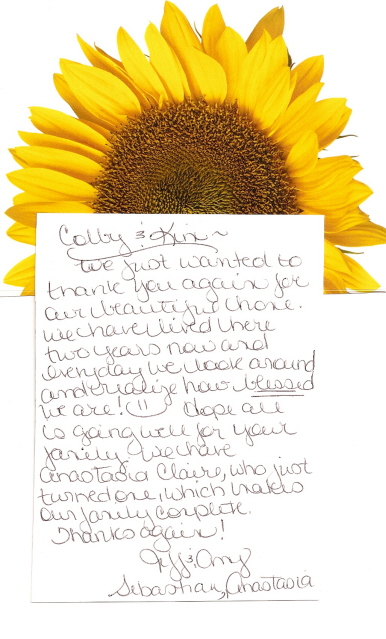 Colby & Kim ~
We just wanted to
thank you again for
our beautiful home.
We have lived here
two years now and
everyday we look around
and realize how blessed
we are! Hope all
is going well for your
family. We have
Anastasia Claire, who just
turned one, which makes
our family complete.
Thanks again!
Jeff & Amy
Sebastian, Anastasia